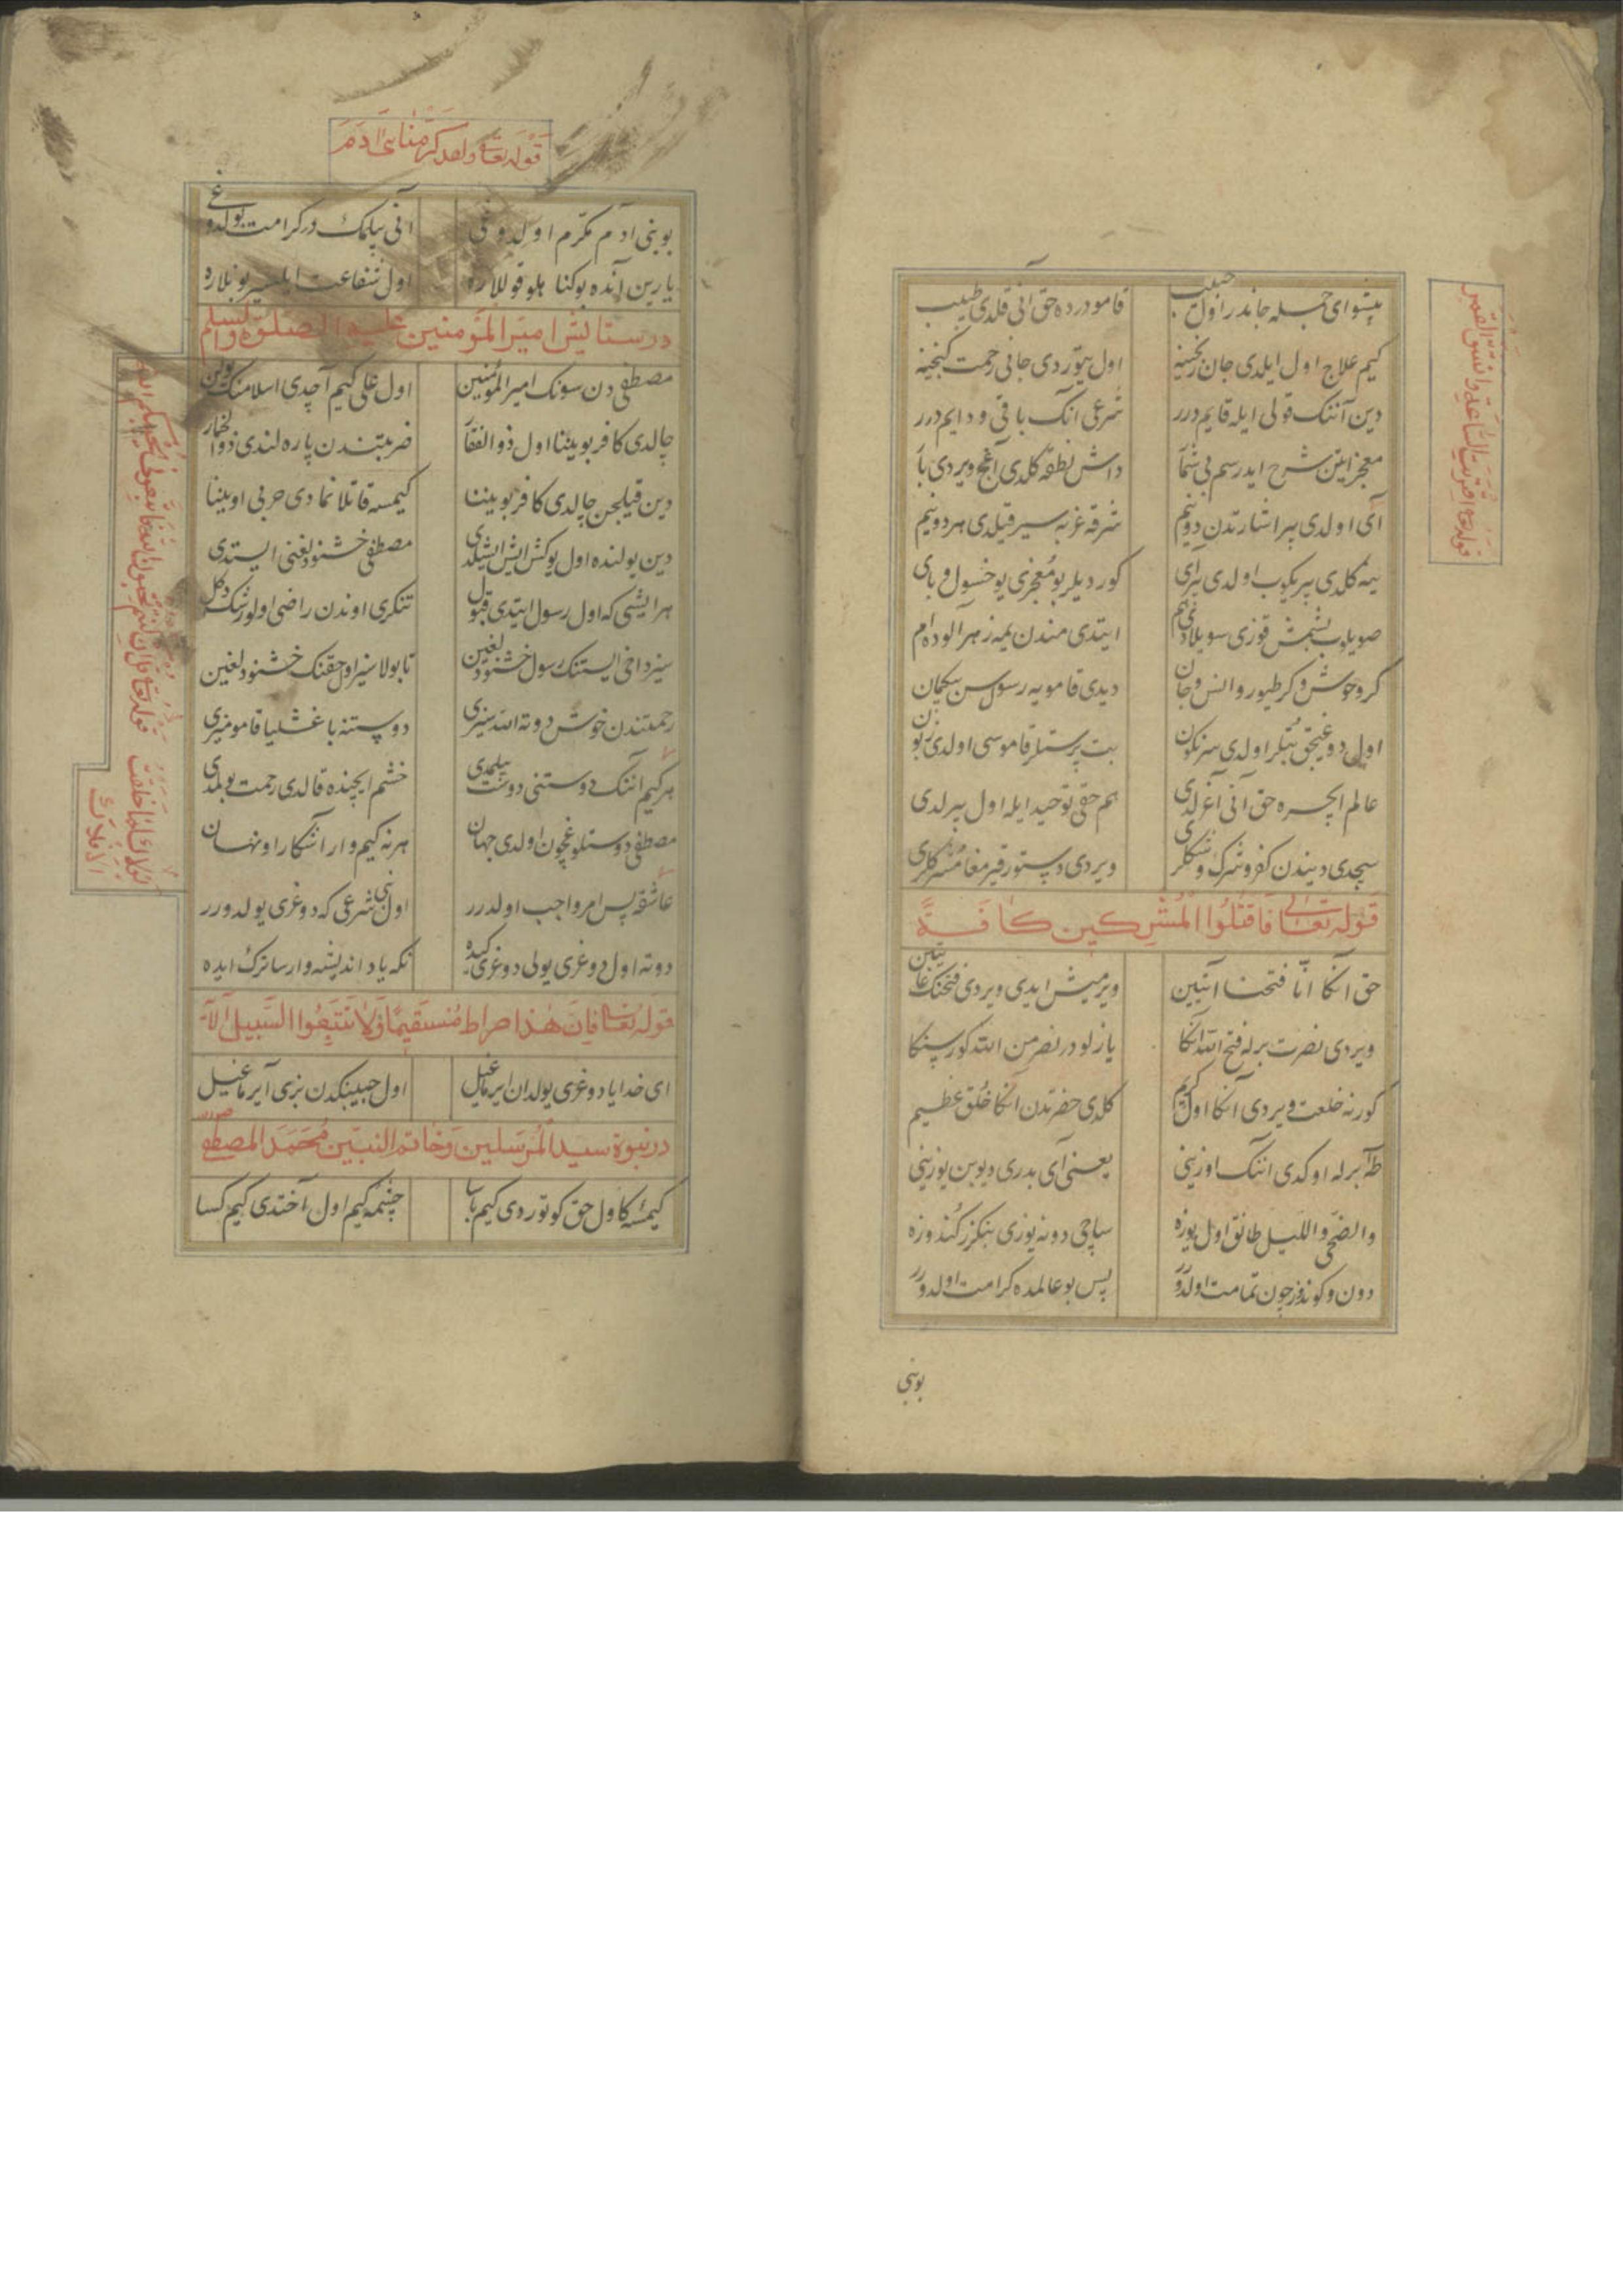 پیشوای جمله جاندر اول حبیب
قامو درده حق آنی قلدی طبیب
کیم علاج اول ایلدی جان رنجینه
اول یتوردی جانی رحمت گنجینه
دین آننک قولی ایله قایم درر
شرعی انک باقی و دایم درر
معجزاتین شرح ایدرسم بی شمار
داش نطقه کلدی آغج ویردی بار
آی اولدی بیر اشارتدن دونیم
شرقه غربه سیر قیلدی هر دو نیم
ینه کلدی بیریکوب اولدی بیر آی
کوردیلر بو معجزی یوخسول و بای
صویلوب بشمش قوزی سویلادی هم
ایتدی مندن یمه زهرآلوده ام
کر وحوش و کر طیور و انس و جان
دیدی قامویه رسول سن بیکمان
اول دوغیجق بتلر اولدی سرنکون
بت پرستلر قاموسی اولدی زبون
عالم ایچره حق آنی آغرلدی
هم حقی توحید ایله اول بیرلدی
سچدی دیندن کفر و شرک و شکلری
ویردی دستور قیرمغا مشرکلری
قوله تعالی فاقتلوا المشرکین کافة
حق انکا انا فتحنا آیتین
ویرمیش ایدی ویردی فتحنک غایتین
ویردی نصرت برله فتح الله انکا
یازلودر نصر من الله کور سنکا
کور نه خلعت ویردی آنکا اول کریم
کلدی حضرتدن انکا خلق عظیم
طه برله اوکدی اننک اوزینی
یعنی آی بدری دیوبن یوزینی
والضحی واللیل طانق اول یوزه
ساچی دونه یوزی بنکزر کندوزه
دون و کوندوز چون تمامت اولدور
پس بو عالمده کرامت اولدور
بوبنی
قوله تعا اقتربت الساعة وانشق القمر
قوله تعا ولقد کرمنا بنی ادم
بوبنی ادم مکرم اولدوغی
آنی بیلمک در کرامت بولدوغی
یارین آنده بو کناهلو قوللاره
اول شفاعت ایلیسر بونلاره
در ستایش امیر المؤمنین علیه الصلوة والسلم
مصطفی دن سونک امیر المؤمنین
اول علی کیم آچدی اسلامنک دین
چالدی کافر بوینینا اول ذوالفقار
ضربتندن پاره لندی ذوالخمار
دین قیلجن چالدی کافر بوینینا
کیمسه قاتلانمادی حربی اوینینا
دین یولنده اول یوکش ایش ایشلدی
مصطفی خشنودلغنی ایستدی
هر ایشی که اول رسول ایتدی قبول
تنکری اوندن راضی اولور شک دکل
سیز داخی ایستنک رسول خشنودلغین
تا بولاسیز اول حقنک خشنودلغین
رحمتندن خوش دوته الله سیزی
دوستنه باغشلیا قامومیزی
هر کیم آننک دوستنی دوست بیلمدی
خشم ایچنده قالدی رحمت بولمدی
مصطفی دوستلوغیچون اولدی جهان
هر نه کیم وار اشکارا و نهان
عاشقه پس امر واجب اولدرر
اول نبی شرعی که دوغری یولدورر
دوته اول دوغری یولی دوغری کیده
نکه یاد اندیشه وارسا ترک ایده
قوله تعا فان هذا صراط مستقیما ولا تتبعوا السبیل الآیة
ای خدایا دوغری یولدن ایرماغیل
اول حبیبنکدن بزی آیرماغیل
در نبوة سید المرسلین و خاتم النبیین محمد المصطفی
کیمسه کا اول حق کوتوردی کیم
چشمه کیم اول آختدی کیم کسا
لولاک لما خلقت الافلاک